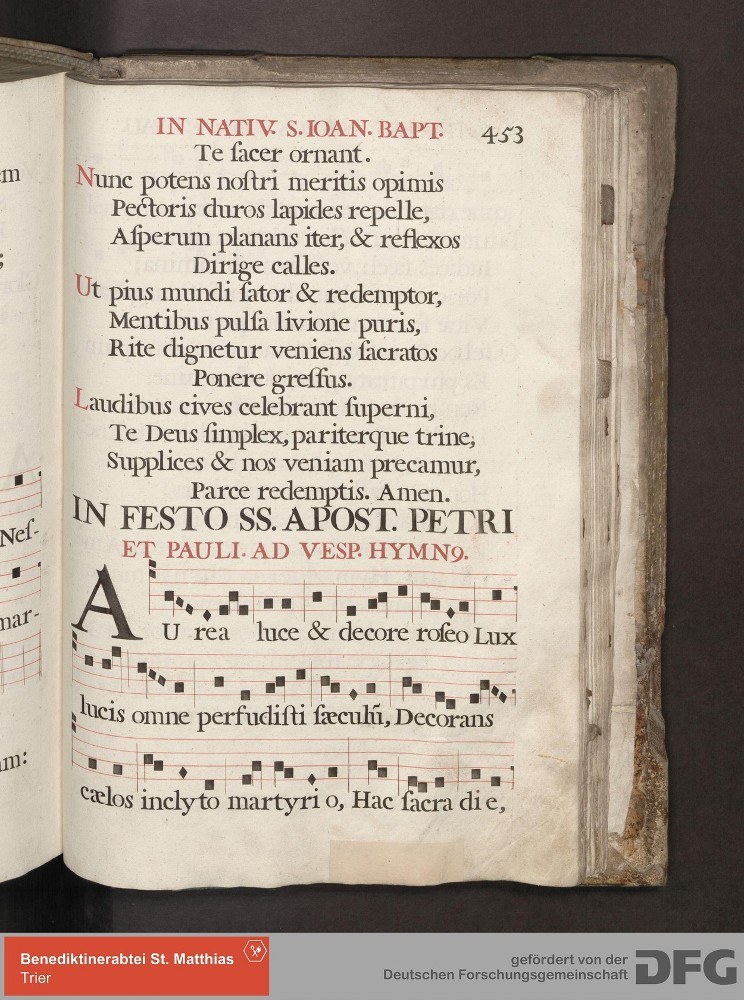 em
;
Neſ-
mar-
am:
IN NATIV. S. IOAN. BAPT. 453
Te ſacer ornant.
Nunc potens noſtri meritis opimis
Pectoris duros lapides repelle,
Aſperum planans iter, & reflexos
Dirige calles.
Ut pius mundi ſator & redemptor,
Mentibus pulſa livione puris,
Rite dignetur veniens ſacratos
Ponere greſſus.
Laudibus cives celebrant ſuperni,
Te Deus ſimplex, pariterque trine,
Supplices & nos veniam precamur,
Parce redemptis. Amen.
IN FESTO SS. APOST. PETRI
ET PAULI. AD VESP. HYMN9.
AU rea luce & decore roſeo Lux
lucis omne perfudiſti ſæculũ, Decorans
cælos inclyto martyri o, Hac ſacra di e,
Benediktinerabtei St. Matthias
Trier
gefördert von der
Deutschen Forschungsgemeinschaft
DFG